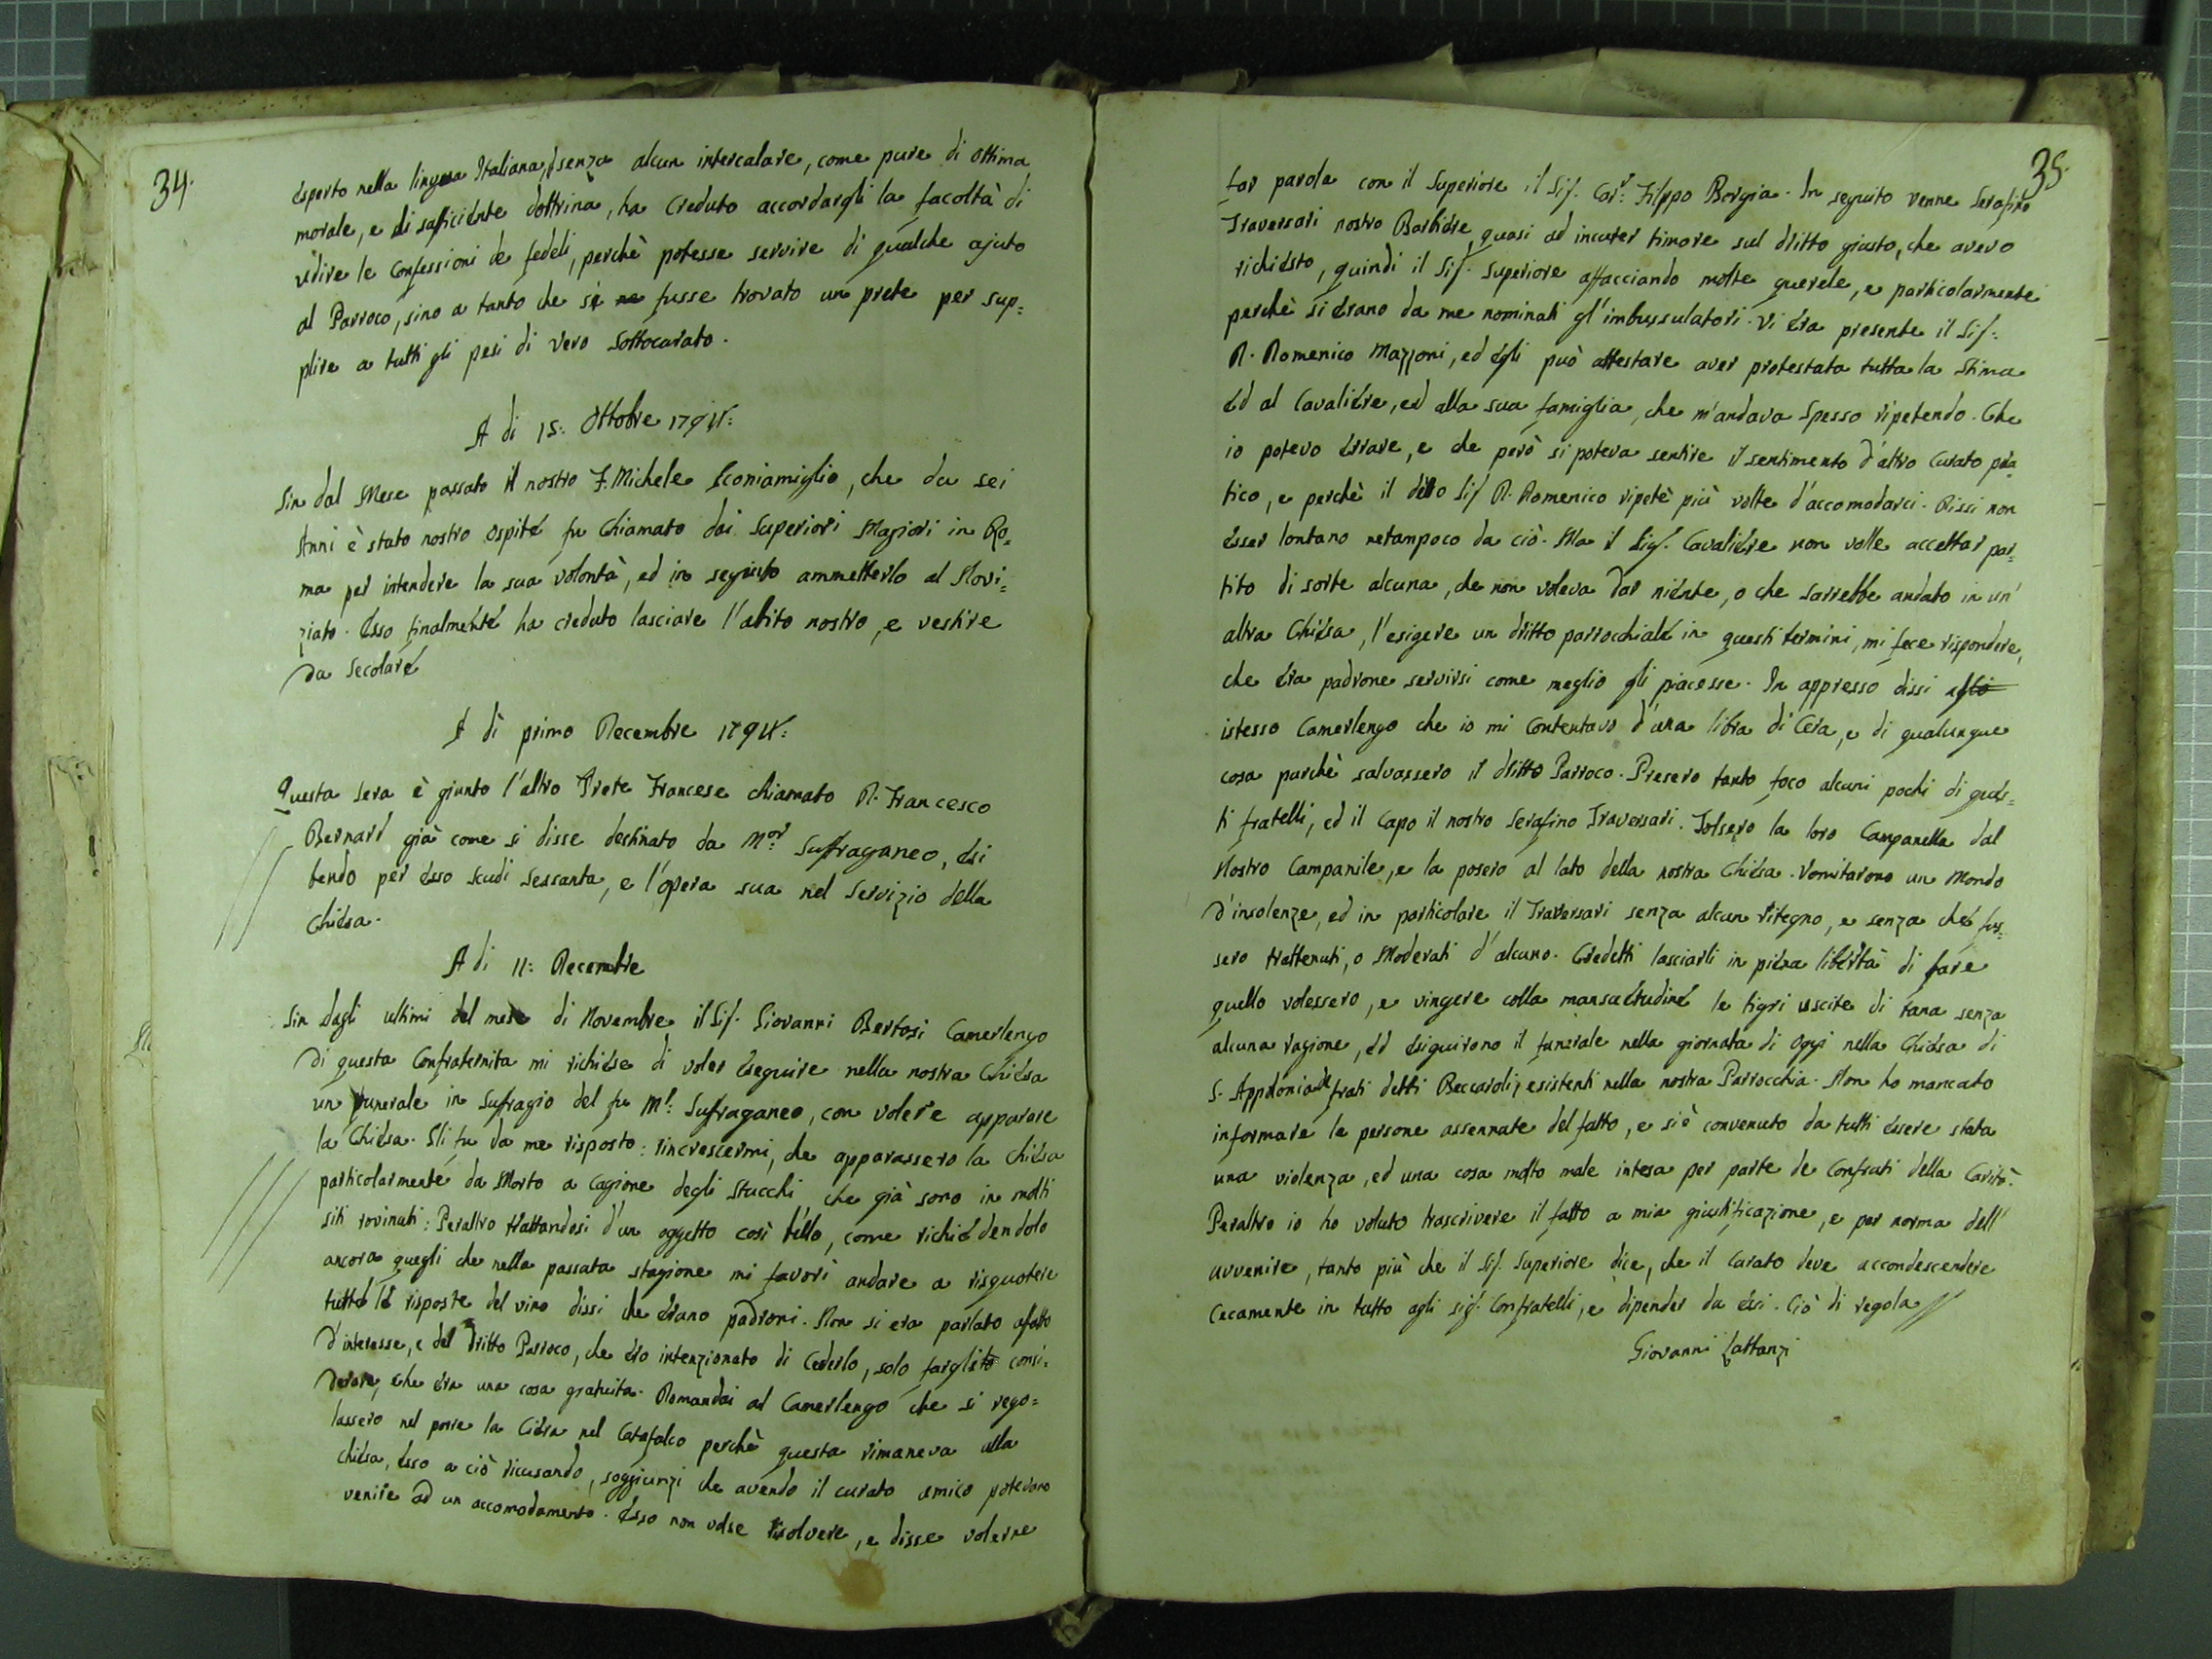 34.
Esperto nella lingua Italiana, senza alcun intercalare, come pure di ottima
morale, e di sufficiente dottrina, ha creduto accordargli la facoltà di
udire le Confessioni de fedeli, perchè potesse servire di qualche ajuto
al Parroco, sino a tanto che si ne fusse trovato un prete per sup=
plire a tutti gli pesi di vero Sottocurato.
A di 15: Ottobre 1794:
Sin dal Mese passato il nostro F. Michele Sconiamiglio, che da sei
Anni è stato nostro Ospite fu Chiamato dai Superiori Magiori in Ro=
ma per intendere la sua volontà, ed in seguito ammetterlo al Novi=
ziato. Esso finalmente ha creduto lasciare l'abito nostro, e vestire
da Secolare
A dì primo Decembre 1794:
Questa sera è giunto l'altro Prete Francese chiamato D. Francesco
Bernard già come si disse destinato da M.or Suffraganeo, esi
bendo per esso scudi sessanta, e l'opera sua nel Servizio della
Chiesa.
A di 11: Decembre
Sin dagli ultimi del mese di Novembre il Sig. Giovanni Bertosi Camerlengo
di questa Confraternita mi richiese di voler eseguire nella nostra Chiesa
un Funerale in Sufragio del fu M.r: Suffraganeo, con volere apparare
la Chiesa. Gli fu da me risposto: rincrescermi, che apparassero la Chiesa
particolarmente da Morto a Cagione degli Stucchi che già sono in molti
siti rovinati: Peraltro trattandosi d'un oggetto così bello, come richiedendolo
ancora quegli che nella passata stagione mi favorì andare a risquotere
tutte le risposte del vino dissi che erano padroni. Non si era parlato afatto
d'interesse, e del Dritto Parroco, che ero intenzionato di Cederlo, solo farglito consi=
derare, che era una cosa gratuita. Domandai al Camerlengo che si rego=
lassero nel porre la Ciera nel Catafalco perchè questa rimaneva alla
Chiesa, Esso a ciò ricusando, soggiunzi che avendo il curato amico potevano
venire ad un accomodamento. Esso non volse risolvere, e disse volerne
35.
far parola con il Superiore il Sig. Cav.r: Filippo Borgia. In seguito venne Serafino
Traversari nostro Barbiere quasi ad incuter timore sul dritto giusto, che avevo
richiesto, quindi il Sig. Superiore affacciando molte querele, e particolarmente
perchè si erano da me nominati gl'imbussulatori. Vi era presente il Sig:
D. Domenico Mazzoni, ed egli può attestare aver protestata tutta la Stima
ed al Cavaliere, ed alla sua famiglia, che m'andava spesso ripetendo. Che
io potevo errare, e che però si poteva sentire il sentimento d'altro Curato pra
tico, e perchè il detto Sig D. Domenico ripetè più volte d'accomodarci. Dissi non
esser lontano netampoco da ciò. Ma il Sig. Cavaliere non volle accettar par=
tito di sorte alcuna, che non voleva dar niente, o che sarrebbe andato in un'
altra Chiesa, l'esigere un dritto parrocchiale in questi termini, mi fece rispondere,
che era padrone servirsi come meglio gli piacesse. In appresso dissi
istesso Camerlengo che io mi Contentavo d'una libra di Cera, e di qualunque
cosa purchè salvassero il dritto Parroco. Presero tanto foco alcuni pochi di ques=
ti fratelli, ed il Capo il nostro Serafino Traversari. Tolsero la loro Campanella dal
Nostro Campanile, e la posero al lato della nostra Chiesa. Vomitarono un Mondo
d'insolenze, ed in particolare il Traversari senza alcun ritegno, e senza che fus=
sero trattenuti, o Moderati d'alcuno. Credetti lasciarli in piena libertà di fare
quello volessero, e vingere colla mansuetudine le tigri uscite di tana senza
alcuna ragione, ed esiguirono il funerale nella giornata di Oggi nella Chiesa di
S. Appolonia de frati detti Beccaroli, esistenti nella nostra Parrocchia. Non ho mancato
informare le persone assennate del fatto, e si è convenuto da tutti essere stata
una violenza, ed una cosa molto male intesa per parte de Confrati della Carità.
Peraltro io ho voluto trascrivere il fatto a mia giustificazione, e per norma dell'
avvenire, tanto più che il Sig. Superiore dice, che il Curato deve accondescendere
Cecamente in tutto agli sig. Confratelli, e dipender da essi. Ciò di regola //
Giovanni Lattanzi